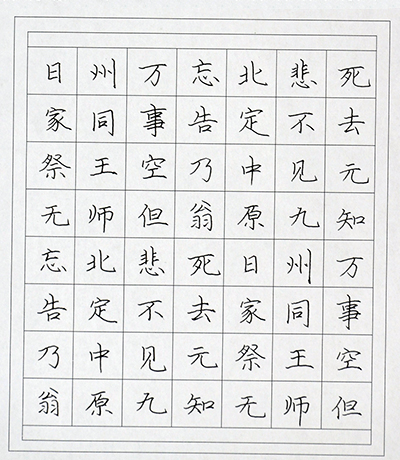 死去元知万事空但
悲不见九州同王师
北定中原日家祭无
忘告乃翁死去元知
万事空但悲不见九
州同王师北定中原
日家祭无忘告乃翁